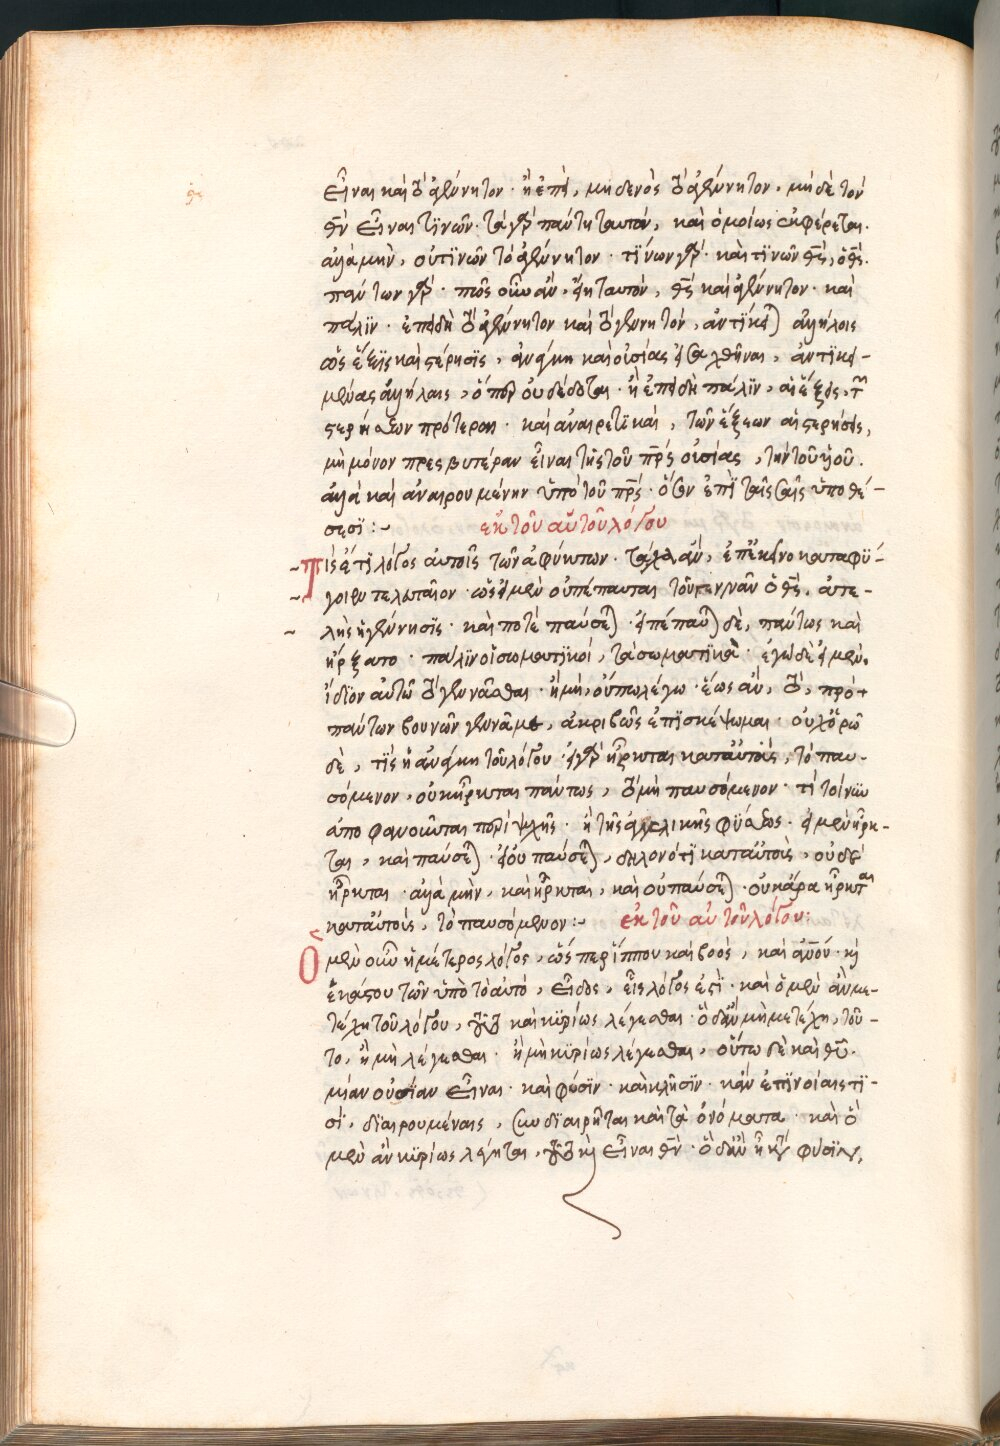 εἶναι καὶ τὸ ἀγέννητον · ἢ ἐπεὶ, μηδενὸς τὸ ἀγέννητον, μηδὲ τὸν
θν̅ εἶναι τϊνῶν · τὰ γὰρ πάντη ταυτὸν, καὶ ὁμοίως ἐκφέρεται.
ἀλλὰ μὴν, οὐ τϊνῶν τὸ ἀγέννητον · τϊνων γάρ · καὶ τϊνῶν θς̅, ὁ θς̅.
πάντων γάρ · πῶς οὖν ἂν, εἴη ταυτὸν, θς̅ καὶ ἀγέννητον · καὶ
πάλϊν · ἐπειδὴ τὸ ἀγέννητον καὶ τὸ γεννητόν, ἀντίκειται ἀλλήλοις
ὡς ἕξϊς καὶ στέρησϊς, ἀνάγκη καὶ οὐσίας εἰσαχθῆναι, ἀντϊκει-
μένας ἀλλήλαις, ὅπερ οὐ δέδοται · ἢ ἐπειδὴ πάλϊν, αἱ ἕξεις, τῶν
στερήσεων πρότεραι · καὶ ἀναιρετϊκαὶ, τῶν ἕξεων αἱ στερήσεις,
μὴ μόνον πρεσβυτέραν εἶναι τῆς τοῦ πρς̅ οὐσίας, τὴν τοῦ υἱοῦ.
ἀλλὰ καὶ ἀναιρουμένην ὑπὸ τοῦ πρς̅ · ὅσον ἐπὶ ταῖς σαῖς ὑποθέ-
σεσϊ :~ ἐκ τοῦ αὐτοῦ λόγου
Τίς ἔτϊ λόγος αὐτοῖς τῶν ἀφύκτων · τάχα ἂν, ἐπ' ἐκεῖνο καταφϋ-
γοιεν τελευταῖον · ὡς εἰ μὲν οὐ πέπαυται τοῦ γεννᾶν ὁ θς̅, ἀτε-
λὴς ἡ γέννησϊς · καὶ ποτὲ παύσεται · εἰ πέπαυται δὲ, πάντως καὶ
ἤρξατο · πάλϊν οἱ σωματϊκοὶ, τὰ σωματϊκὰ · ἐγὼ δὲ εἰ μὲν,
ἀΐδϊον αὐτῶ τὸ γεννᾶσθαι · ἢ μὴ, οὔπω λέγω · ἕως ἂν, τὸ, πρὸ
πάντων βουνῶν γεννᾶ με, ἀκριβῶς ἐπϊσκέψωμαι · οὐχ ὁρῶ
δὲ, τίς ἡ ἀνάγκη τοῦ λόγου · εἰ γὰρ ἦρκται κατ' αὐτοὺς, τὸ παυ-
σόμενον, οὐκ ἦρκται πάντως, τὸ μὴ παυσόμενον · τί τοίνυν
ἀποφανοῦνται περὶ ψυχῆς · ἢ τῆς ἀγγελικῆς φύσεως · εἰ μὲν ἦρκ-
ται, καὶ παύσεται · εἰ οὐ παύσεται, δηλονότϊ κατ' αὐτοὺς, οὐδὲ
ἦρκται · ἀλλὰ μὴν, καὶ ἦρκται, καὶ οὐ παύσεται · οὐκ ἄρα ἦρκται
κατ' αὐτοὺς, τὸ παυσόμενον :~ ἐκ τοῦ αὐτοῦ λόγου :
Ὁ μὲν οὖν ἡμέτερος λόγος, ὥσπερ ἵππου καὶ βοὸς, καὶ ἀνου̅ · καὶ
ἑκάστου τῶν ὑπὸ τὸ αὐτὸ, εἶδος, εἷς λόγος ἐστὶ · καὶ ὃ μὲν ἂν με-
τέχη τοῦ λόγου, τοῦτο καὶ κϋρίως λέγεσθαι · ὃ δ' ἂν μὴ μετέχη, τοῦ-
το, ἢ μὴ λέγεσθαι · ἢ μὴ κϋρίως λέγεσθαι, οὕτω δὲ καὶ θυ̅ ·
μίαν οὐσίαν εἶναι · καὶ φύσϊν · καὶ κλῆσϊν · κἂν ἐπϊνοίαις τϊ-
σὶ, δϊαιρουμέναις, συνδϊαιρῆται καὶ τὰ ὀνόματα · καὶ ὃ
μὲν ἂν κϋρίως λέγηται, τοῦτο καὶ εἶναι θν̅ · ὃ δ' ἂν ἦ κατὰ φύσϊν,